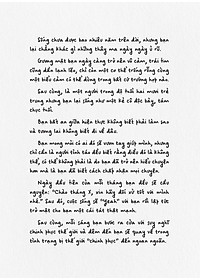 Sống chưa được bao nhiêu năm trên đời, nhưng bạn
lại chẳng khác gì những thây ma ngày ngày ủ rũ.
Gương mặt bạn ngày càng trở nên vô cảm, trái tim
cũng dần lạnh lẽo, chỉ còn một cơ thể trống rỗng cùng
một biểu cảm cố định trong bất cứ trường hợp nào.
Sau cùng, là một người trong độ tuổi hai mươi trẻ
trung nhưng bạn lại sống như một kẻ cô độc bảy, tám
chục tuổi.
Bạn bất an giữa hiện thực không biết phải làm sao
và tương lai không biết đi về đâu.
Bạn mong mỏi có ai đó sẽ vươn tay giúp mình, nhưng
chỉ cần là người tinh tấu đều biết rằng điều đó là không
thể, có thể không phải là do bạn đã trở nên hiểu chuyện
hơn mà là bạn đã biết cách chấp nhận mọi chuyện.
Ngày đầu tiên của mỗi tháng bạn đều sẽ cầu
nguyện: "Chào tháng X, xin hãy đối xử tốt với mình
nhé." Sau đó, cuộc sống sẽ "Yeah" với bạn rồi lập tức
trở mặt cho bạn một cái tát thật mạnh.
Sau cùng, mỗi sáng bạn bước ra cửa với suy nghĩ
chinh phục thế giới và đêm đến bạn sẽ quay về trong
tình trạng bị thế giới "chinh phục" đến ngoan ngoãn.